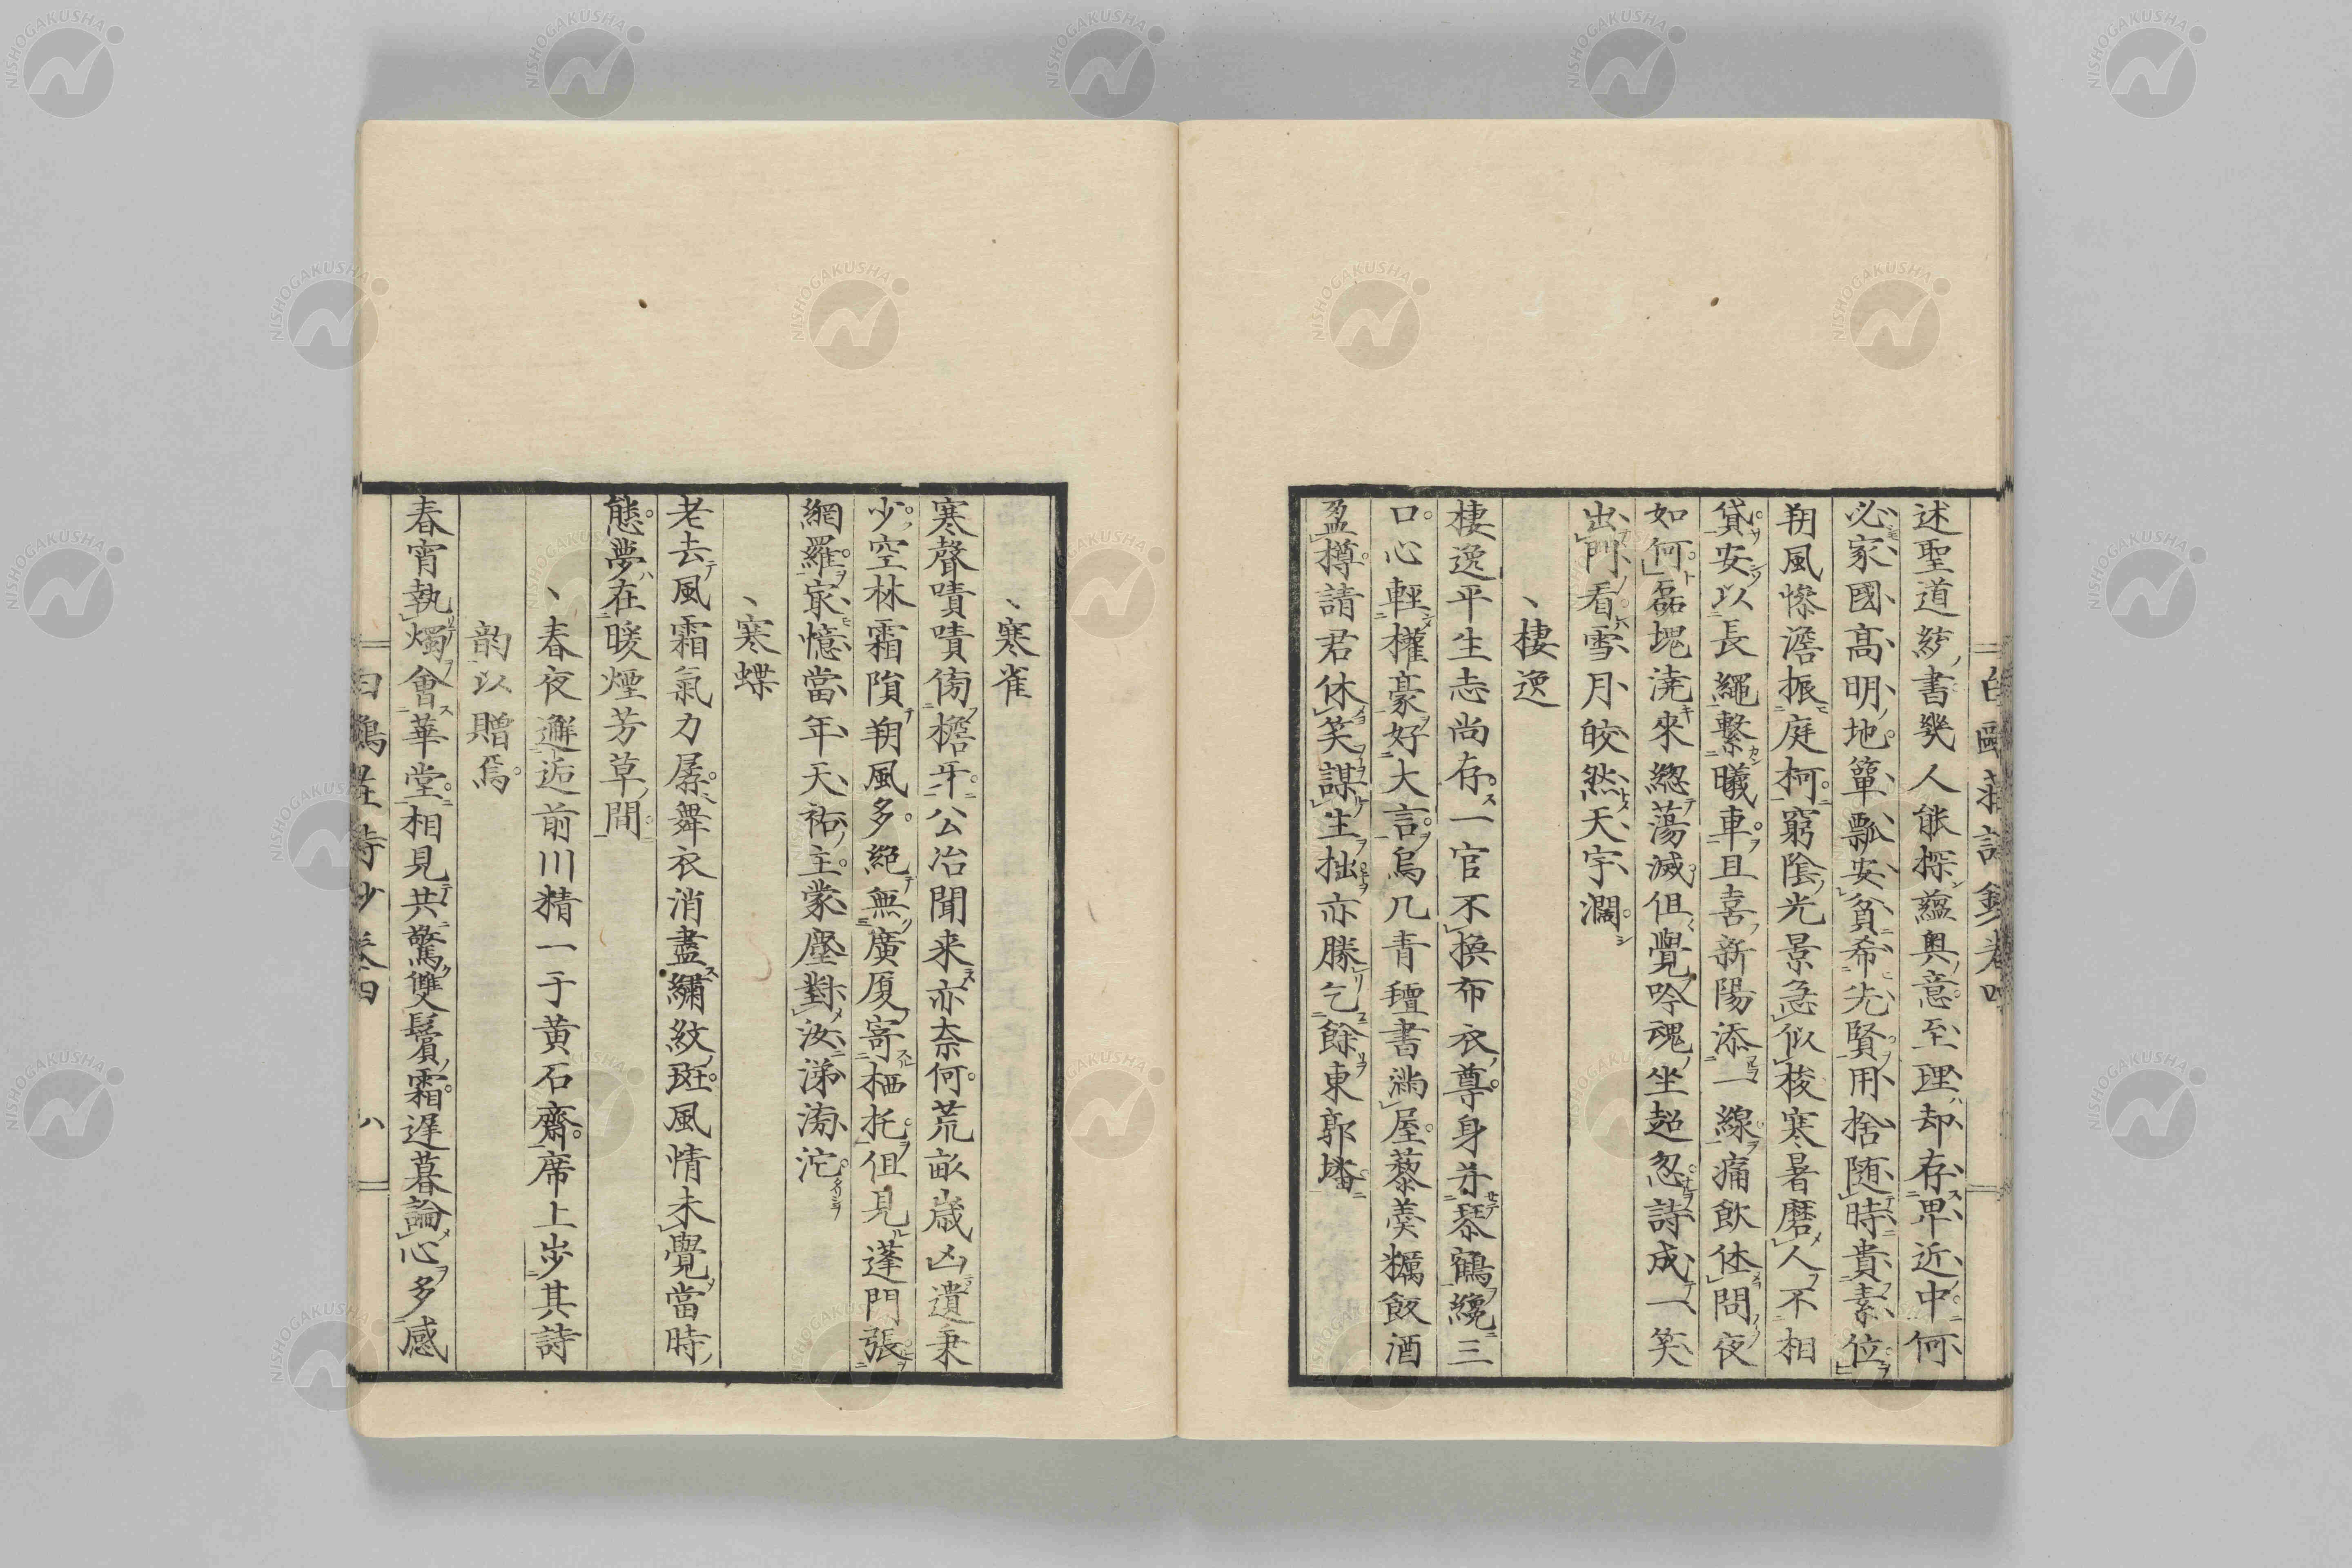 述聖道紡書幾人能探蘊奥意至理却存卑近中何
必家國高明地簞瓢安貧希先賢用捨随時貴素位
朔風慘澹振庭柯窮陰光景急似梭寒暑磨人不相
貸安以長繩繋曦車且喜新陽添一線痛飲休問夜
如何磊塊澆來總蕩滅但覺吟魂坐超忽詩成一笑
出門看雪月皎然天宇濶
棲逸
棲逸平生志尚存一官不換布衣尊身并琴鶴纔三
口心輕權豪好大言烏几青氊書滿屋藜羹糲飯酒
盈樽請君休笑謀生拙亦勝乞餘東郭墦
寒雀
寒聲嘖嘖傍檐牙公冶聞来亦奈何荒畝歳凶遺秉
少空林霜隕朔風多絶無廣厦寄栖托但見蓬門張
網羅㝡憶當年天祐主蒙塵對汝涕滂沱
寒蝶
老去風霜氣力孱舞衣消盡繡紋斑風情未覺當時
態夢在暖煙芳草間
春夜邂逅前川精一于黄石齋席上歩其詩
韵以贈焉
春宵執燭會華堂相見共驚雙鬢霜遅暮論心多感
白鷗荘詩鈔巻四 八
NISHOGAKUSHA